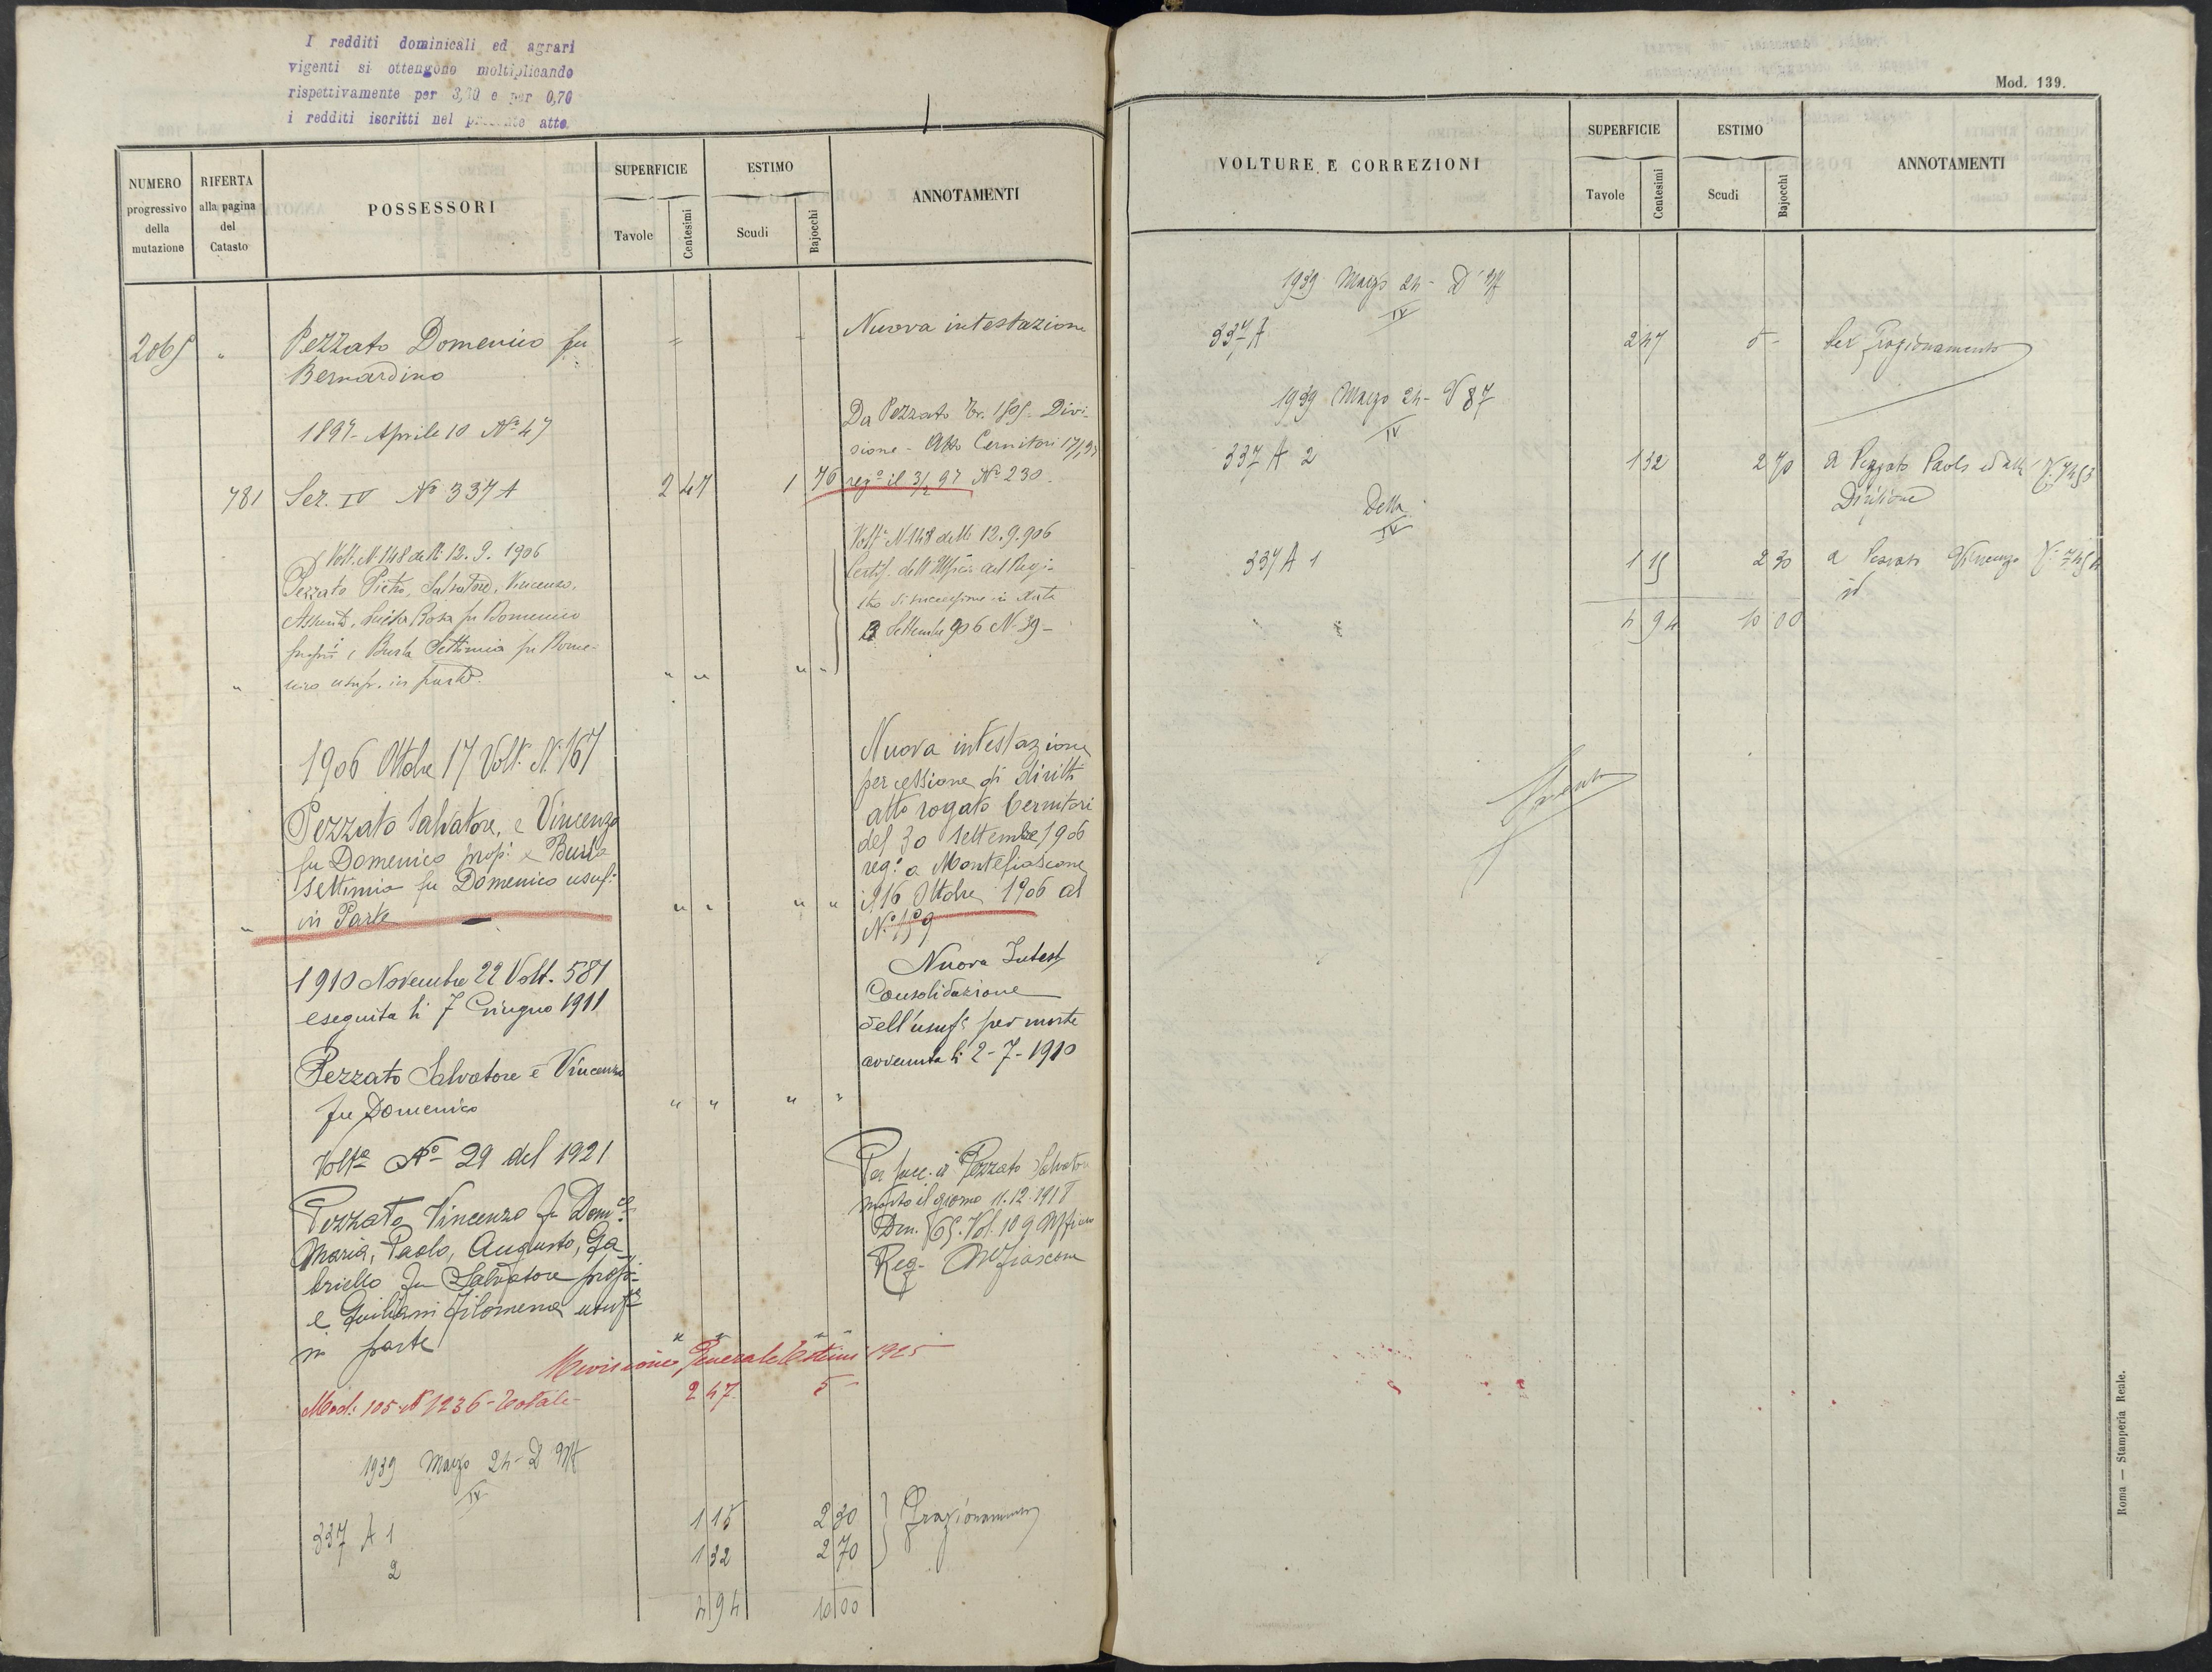 I redditi dominicali ed agrari
vigenti si ottengono moltiplicando
rispettivamente per 3,70 e per 0,70
i redditi iscritti nel presente atto.
NUMERO progressivo della mutazione
RIFERTA alla pagina del Catasto
POSSESSORI
SUPERFICIE
Tavole
Centesimi
ESTIMO
Scudi
Bajocchi
ANNOTAMENTI
2065 " Pezzato Domenico fu " " Nuova intestazione
Bernardino
1897 - Aprile 10 Nº 47
Da Pezzato Divi-
sione - Atto Cernitori
781 Sez. IV Nº 337 A 2 47 1 76 regº il 3/2 97 Nº 230.
Volt. N. 148 dell. 12. 9. 1906
Pezzato Pietro, Salvatore, Vincenzo,
Assunta, Rosa fu Domenico
propri e Burla Settimia fu Dome-
nico usufr. in parte.
Volt. N 148 dell. 12.9.906
Certif. dell'Ufficio del Regi-
stro di successione in data
Settembre 906 N. 39 -
1906 Ottobre 17 Volt. N. 167
Pezzato Salvatore, e Vincenzo
fu Domenico prop: e Burla
Settimia fu Domenico usuf:
in Parte
Nuova intestazione
per cessione di diritti
atto rogato Cernitori
del 30 Settembre 1906
reg: a Montefiascone
il 16 Ottobre 1906 al
Nº 159
1910 Novembre 22 Volt. 581
eseguita li 7 Giugno 1911
Pezzato Salvatore e Vincenzo
fu Domenico " " " "
Nuova Intest
Consolidazione
dell'usufº per morte
avvenuta li 2-7-1910
Volta Nº 29 del 1921
Pezzato Vincenzo fu Domco
Maria, Paolo, Augusto, Ga
briello fu Salvatore propri
e Giuliani Filomena usufa
in parte
Per succ. di Pezzato Salvatore
morto il giorno 11.12.1918
Den. 65. Vol. 109 Ufficio
Reg. Mefiascone
Revisione Generale Estimi 1925
Mod: 105 N 1236 - Totale - 2 47 5 -
1939 Marzo 24 - D
IV
337 A 1 1 15 2 30 Frazionamento
2 1 32 2 70
4 94 10 00
Mod. 139.
VOLTURE E CORREZIONI
SUPERFICIE
Tavole
Centesimi
ESTIMO
Scudi
Bajocchi
ANNOTAMENTI
1939 Marzo 24 - D
IV
337 A 2 47 5 - Per Frazionamento
1939 Marzo 24 - V 87
IV
337 A 2 1 32 2 70 a Pezzato Paolo ed altri
Divisione
Detta
IV
337 A 1 1 15 2 30 a Pezzato Vincenzo
id
4 94 10 00
Roma — Stamperia Reale.